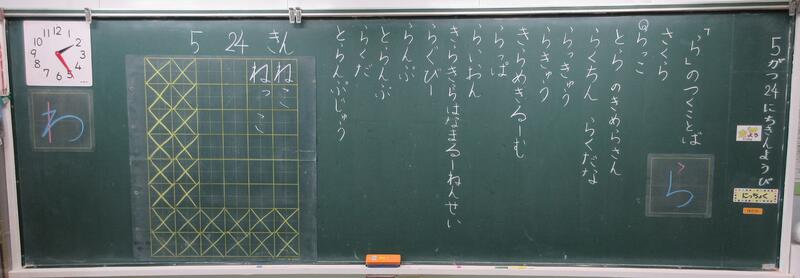 5がつ24にちきんようび
よてい
にっちょく
「ら」のつくことば
さくら
らっこ
ら
とら のきめらさん
らくちん らくだな
らっきゅう
らきゅう
きらめきるーむ
らっぱ
らいおん
きらきらはなまるーねんせい
らぐびー
らんぷ
とらんぷ
らくだ
とらんぷじゅう
5 24 きん
ねこ
ねっこ
わ
12 1 2 3 4 5 6 7 8 9 10 11